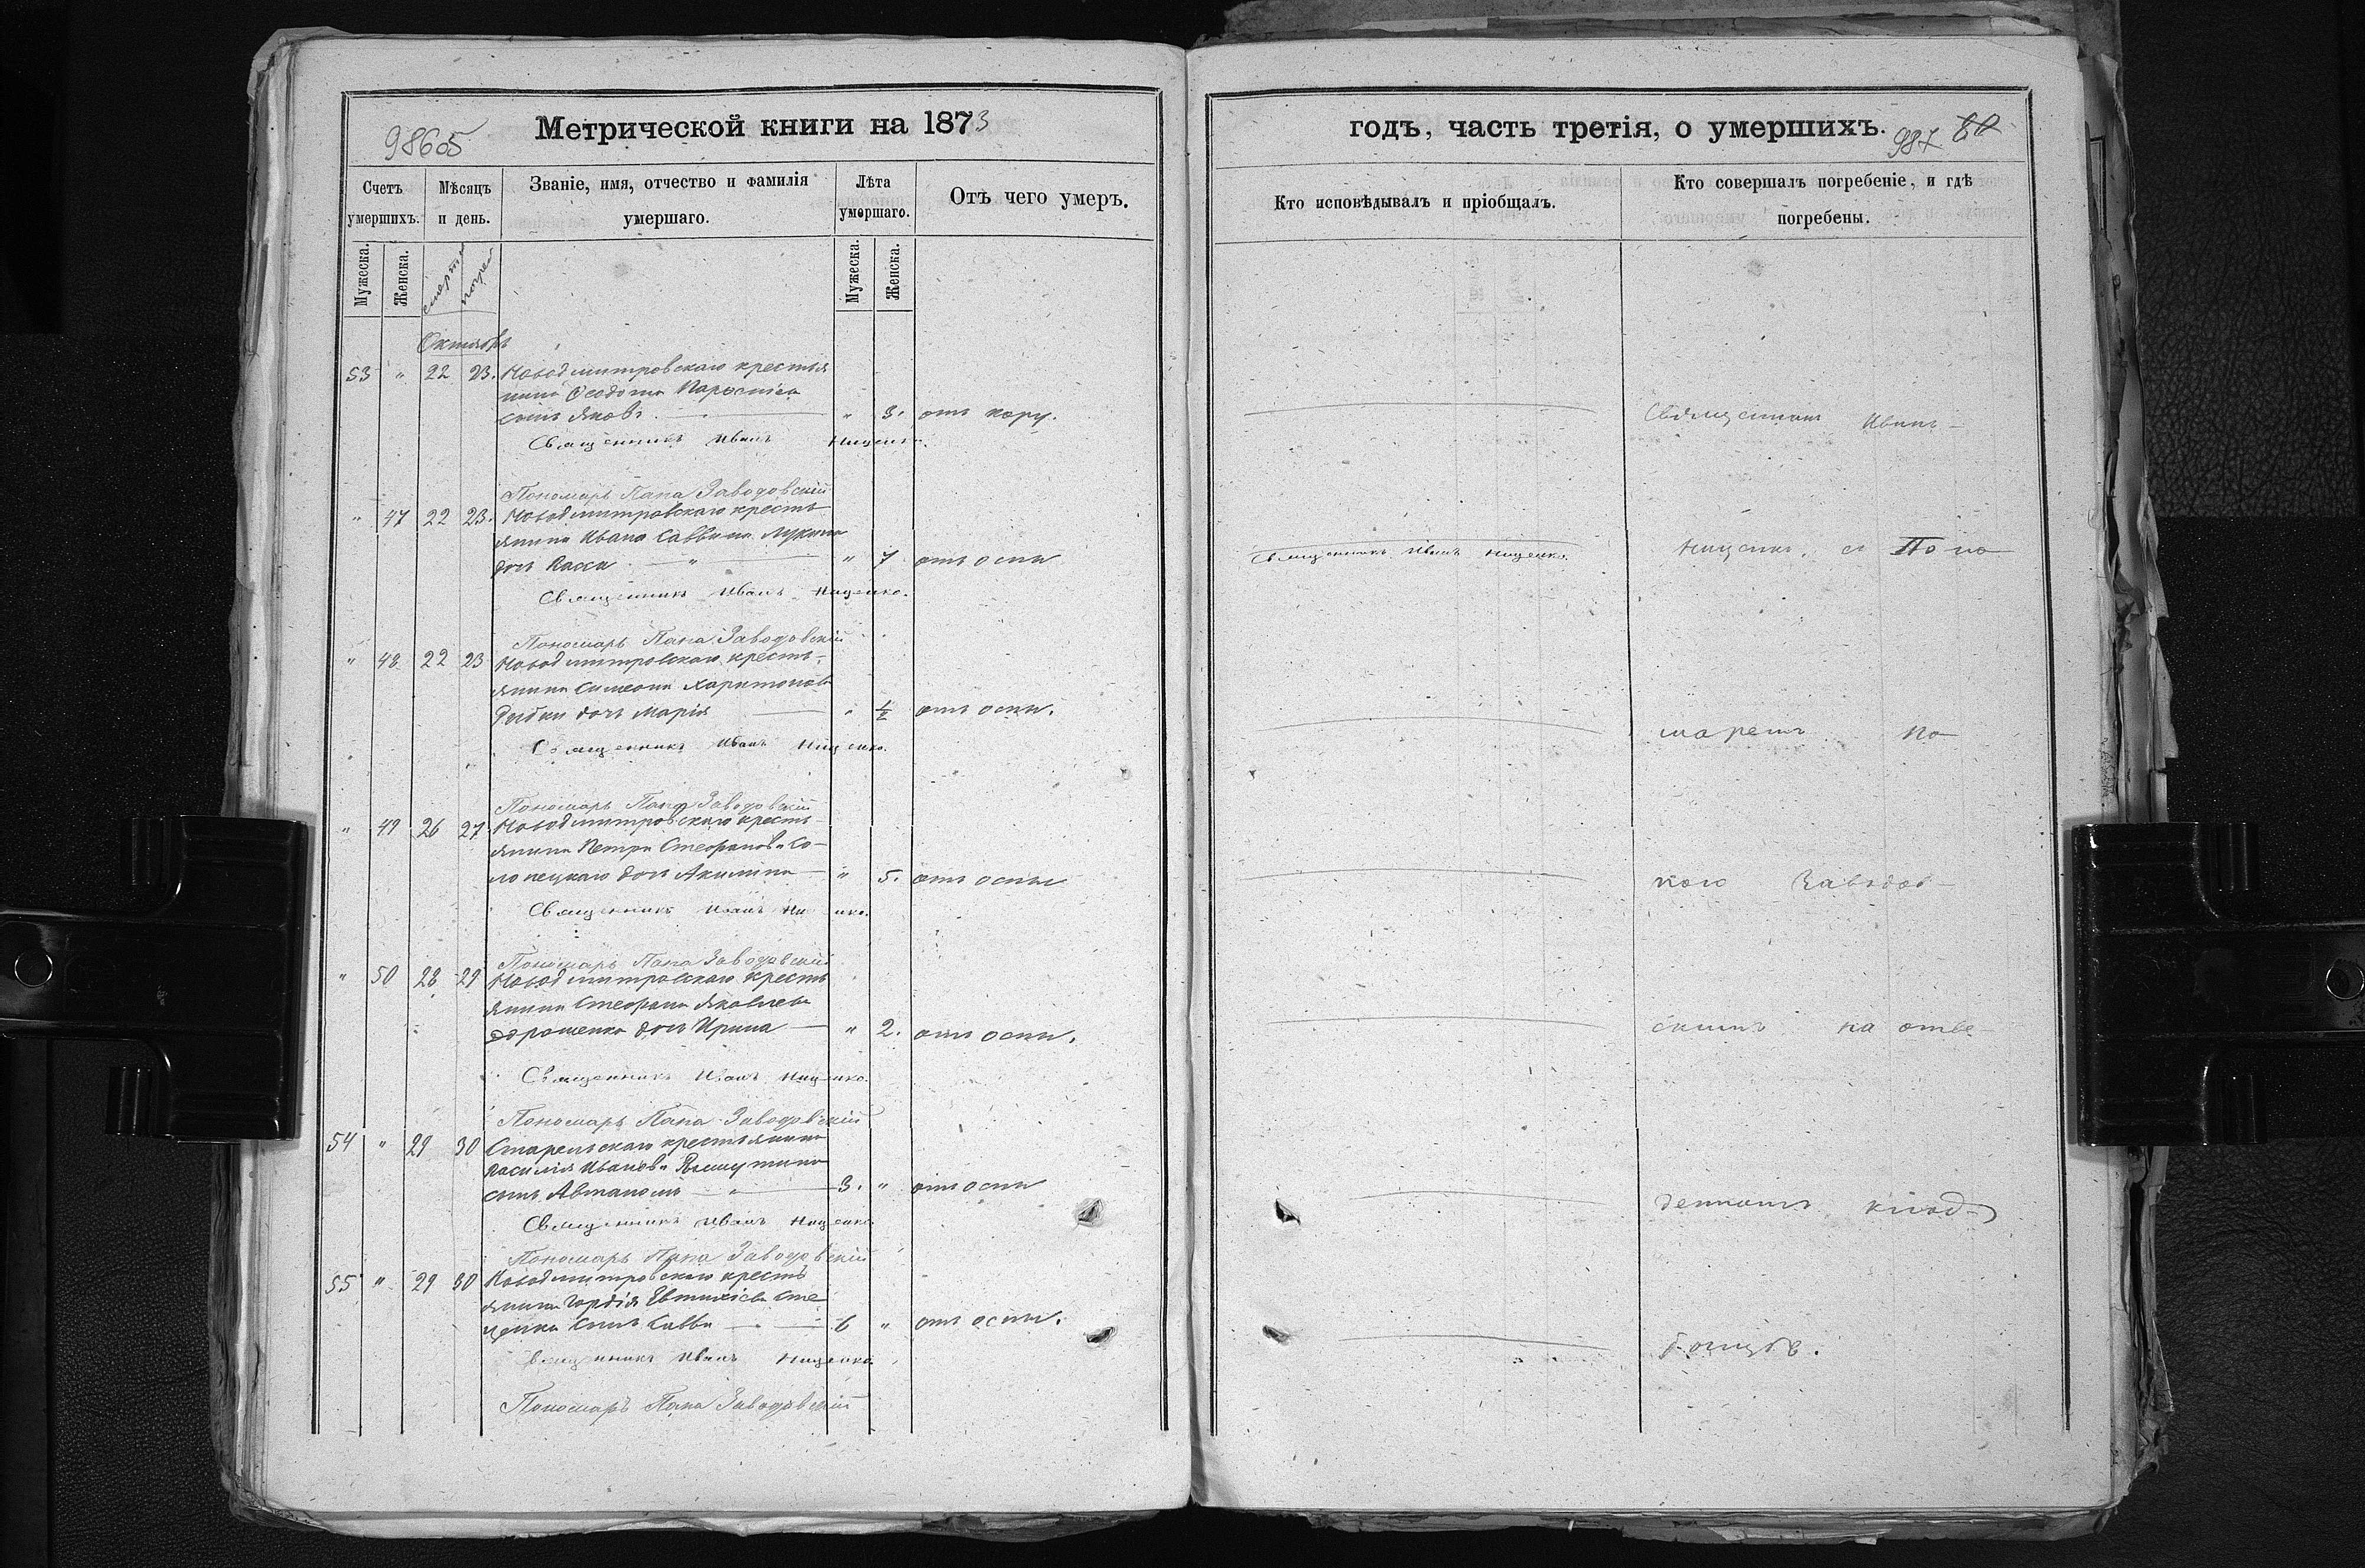 Метрической книги на 1873
98605
Счетъ умершихъ.
Мѣсяцъ и день.
Званіе, имя, отчество и фамилія умершаго.
Лѣта умершаго.
Отъ чего умеръ.
Мужеска.
Женска.
смерти
погре
Мужеска.
Женска.
Октябрь
53 " 22 23. Новодмитровскаго крестья
нина Ѳеодота
сынъ Яковъ. " 3. отъ кору.
Священникъ Иванъ Ниценко.
Пономарь Папа Заводовскій
" 47 22 23. Новодмитровскаго кресть
янина Ивана Саввина
дочь " 7 отъ оспы
Священникъ Иванъ Ниценко.
Пономарь Папа Заводовскій
" 48 22 23 Новодмитровскаго кресть-
янина Симеона Харитонова
Рыбки дочь Марія " ½ отъ оспы.
Священникъ Иванъ Ниценко.
Пономарь Папа Заводовскій
" 49 26 27 Новодмитровскаго кресть-
янина Петра Стефанова Ко-
лопецкаго дочь Акилина " 5. отъ оспы
Священникъ Иванъ
Пономарь Папа Заводовскій
" 50 28 29 Новодмитровскаго кресть
янина Стефана Яковлева
дочь Ирина " 2. отъ оспы.
Священникъ Иванъ Ниценко.
Пономарь Папа Заводовскій
54 " 29 30 крестьянина
Василія Иванова
сынъ Автаномъ " 3. " отъ оспы
Священникъ Иванъ Ниценко
Пономарь Папа Заводовскій
55 " 29 30 Новодмитровскаго кресть
янина Гордія Евтихіева Сте
ценка сынъ Савва 6 " отъ оспы.
Священникъ Иванъ Ниценко
Пономарь Папа Заводовскій
годъ, часть третія, о умершихъ.
987
Кто исповѣдывалъ и пріобщалъ.
Кто совершалъ погребеніе, и гдѣ погребены.
Священникъ Иванъ
Священникъ Иванъ Ниценко.
Ниценко, съ Поно
маремъ Па
пою Заводов-
скимъ на отве
денномъ клад-
бищѣ.